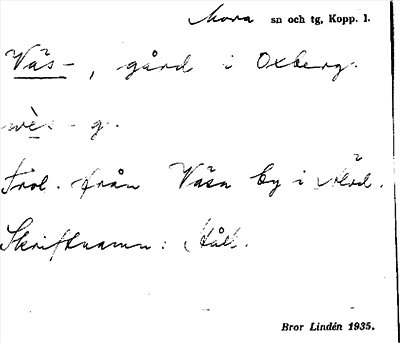 Mora sn och tg, Kopp. l.
Väs-, gård i Oxberg.
Trol. från Våsa by i Älvd.
Skriftnamn: Håll.
Bror Lindén 1935.